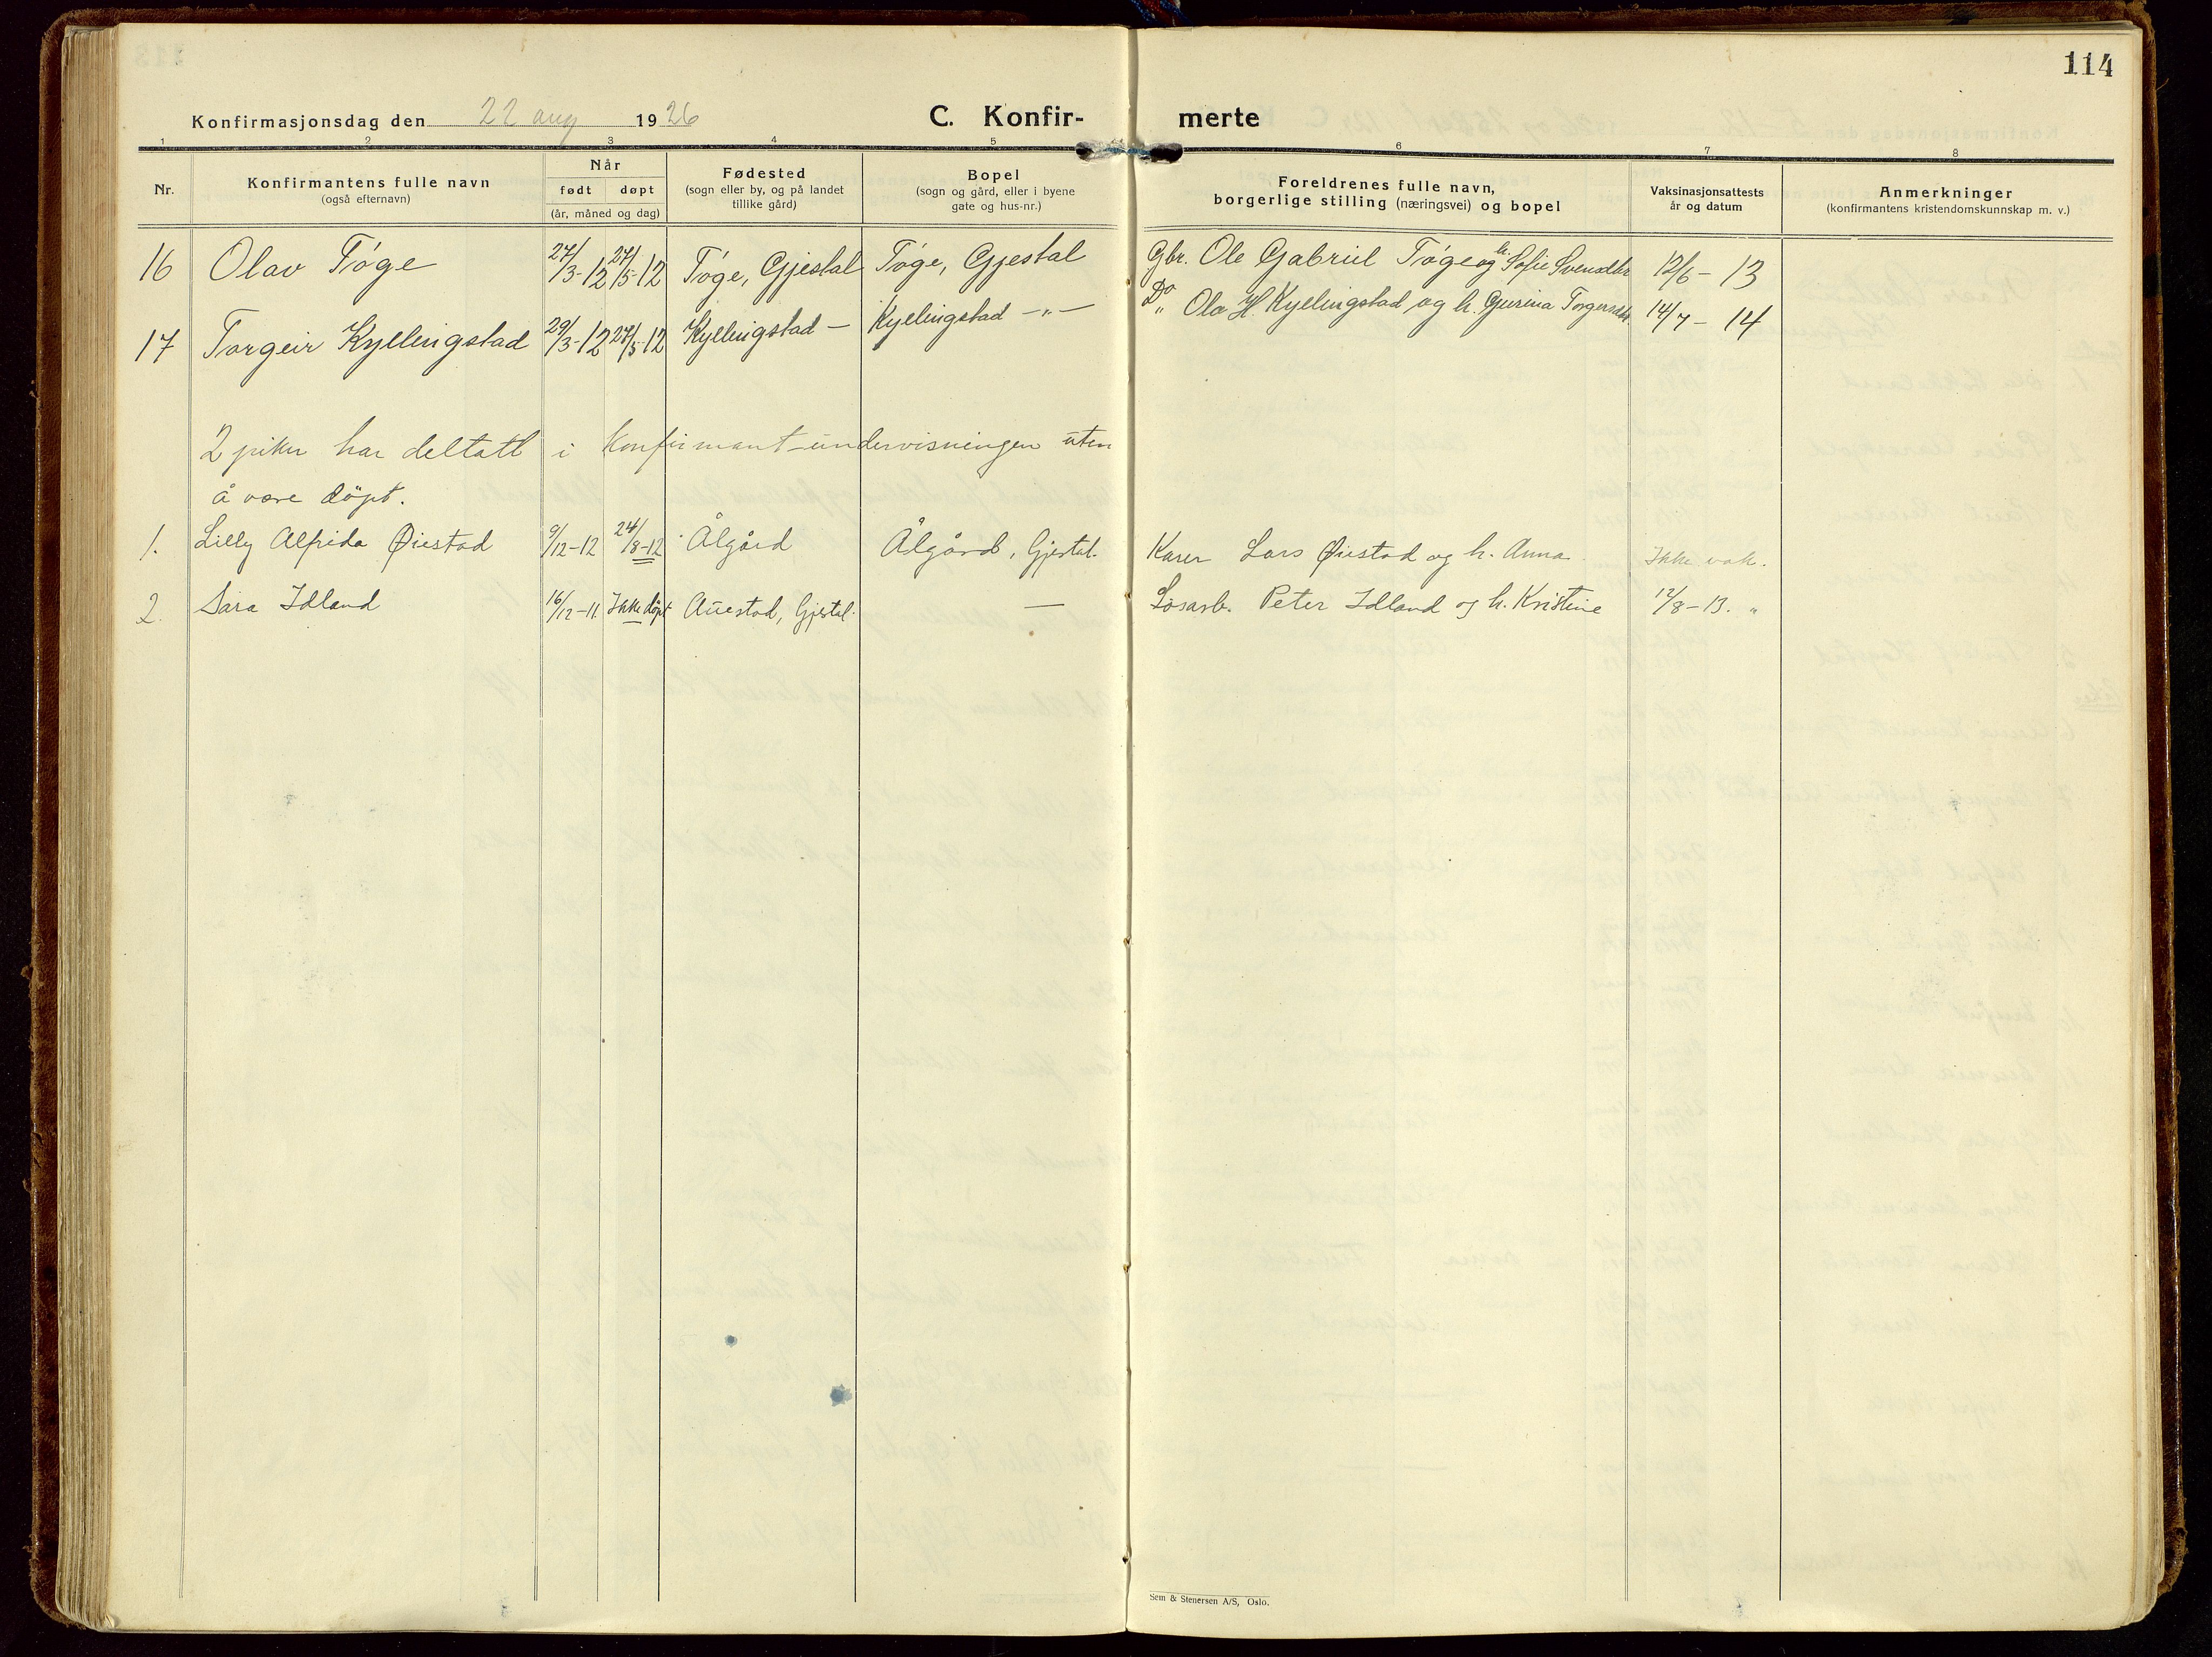 114
Konfirmasjonsdag den 22 aug 1926 C. Konfir- merte
1 2 3 4 5 6 7 8
Nr. Konfirmantens fulle navn (også efternavn) Når født døpt (år, måned og dag) Fødested (sogn eller by, og på landet tillike gård) Bopel (sogn og gård, eller i byene gate og hus-nr.) Foreldrenes fulle navn, borgerlige stilling (næringsvei) og bopel Vaksinasjonsattests år og datum Anmerkninger (konfirmantens kristendomskunnskap m. v.)
16 Olav Tøge 27/3-12 27/5-12 Tøge, Gjestal Tøge, Gjestal Gbr. Ole Gabriel Tøge og h. Sofie Svensdtr 12/6 - 13
17 Torgeir Kyllingstad 29/3-12 27/5-12 Kyllingstad — Kyllingstad — „ — Do „ Ola H. Kyllingstad og h. Gjerina Torgersdtr. 14/7 - 14
2 piker har deltatt i konfirmant-undervisningen uten
å være døpt.
1. Lilly Alfrida Øiestad 9/12-12 24/8-12 Ålgård Ålgård, Gjestal. Karer Lars Øiestad og h. Anna Ikke vak.
2. Sara Idland 16/12-11. Ikke døpt Auestad, Gjestal. — Løsarb. Peter Idland og h. Kristine 12/8-13. „
Sem & Stenersen A/S, Oslo.